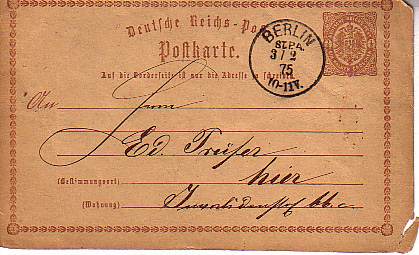 Deutsche Reichs-Post
Postkarte.
BERLIN
St.P.A.
3/2
75
10-11V.
Auf die Vorderseite ist nur die Adresse zu schreiben
An
Herrn
Ed.
(Bestimmungsort)
hier
(Wohnung)
Invalidenstr 66.a